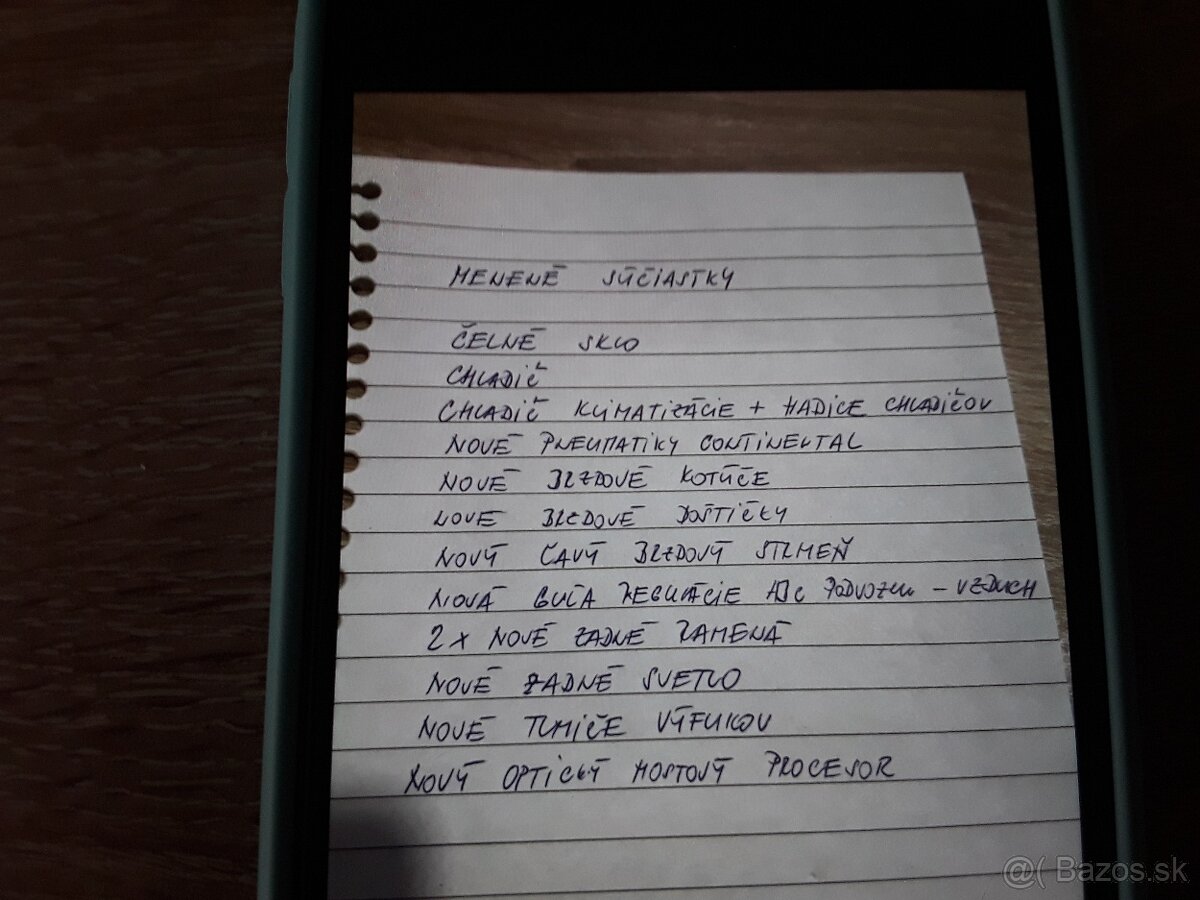 MENENÉ SÚČIASTKY
ČELNÉ SKLO
CHLADIČ
CHLADIČ KLIMATIZÁCIE + HADICE CHLADIČOV
NOVÉ PNEUMATIKY CONTINENTAL
NOVÉ BRZDOVÉ KOTÚČE
NOVÉ BRZDOVÉ DOŠTIČKY
NOVÝ ĽAVÝ BRZDOVÝ STRMEŇ
NOVÁ GUĽA REGULÁCIE ABC PODVOZKU - VZDUCH
2 X NOVÉ ZADNÉ RAMENÁ
NOVÉ ZADNÉ SVETLO
NOVÉ TLMIČE VÝFUKOV
NOVÝ OPTICKÝ MOSTOVÝ PROCESOR
@( Bazos.sk